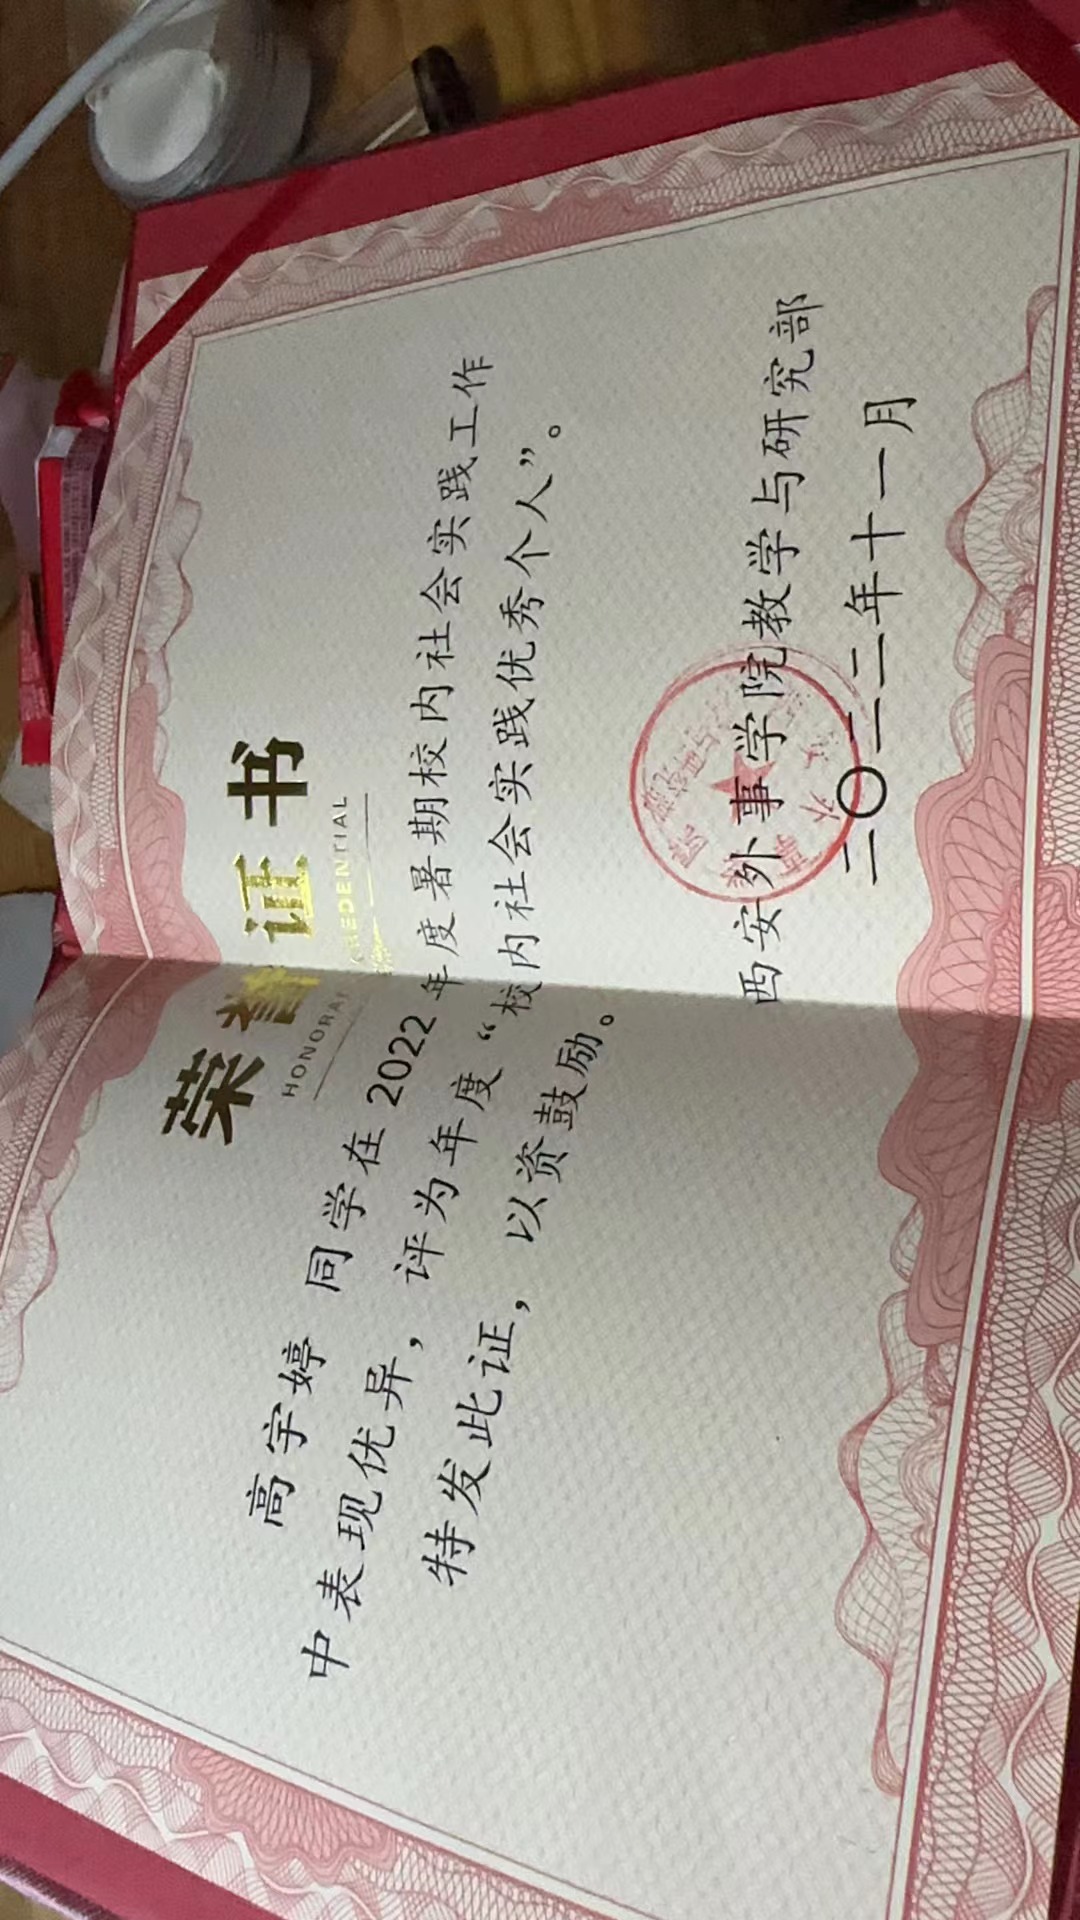 荣誉证书
HONORARY CREDENTIAL
高宇婷 同学在 2022 年度暑期校内社会实践工作
中表现优异，评为年度“校内社会实践优秀个人”。
特发此证，以资鼓励。
西安外事学院教学与研究部
二〇二二年十一月